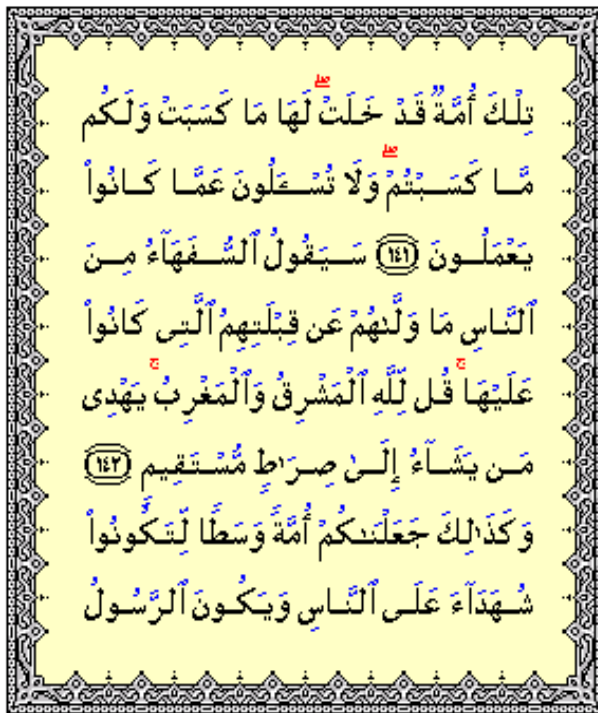 تِلْكَ أُمَّةٌ قَدْ خَلَتْۖ لَهَا مَا كَسَبَتْ وَلَكُم
مَّا كَسَبْتُمْۖ وَلَا تُسْـَٔلُونَ عَمَّا كَانُوا۟
يَعْمَلُونَ ١٤١ سَيَقُولُ ٱلسُّفَهَآءُ مِنَ
ٱلنَّاسِ مَا وَلَّىٰهُمْ عَن قِبْلَتِهِمُ ٱلَّتِى كَانُوا۟
عَلَيْهَاۚ قُل لِّلَّهِ ٱلْمَشْرِقُ وَٱلْمَغْرِبُۚ يَهْدِى
مَن يَشَآءُ إِلَىٰ صِرَٰطٍ مُّسْتَقِيمٍ ١٤٢
وَكَذَٰلِكَ جَعَلْنَٰكُمْ أُمَّةً وَسَطًا لِّتَكُونُوا۟
شُهَدَآءَ عَلَى ٱلنَّاسِ وَيَكُونَ ٱلرَّسُولُ